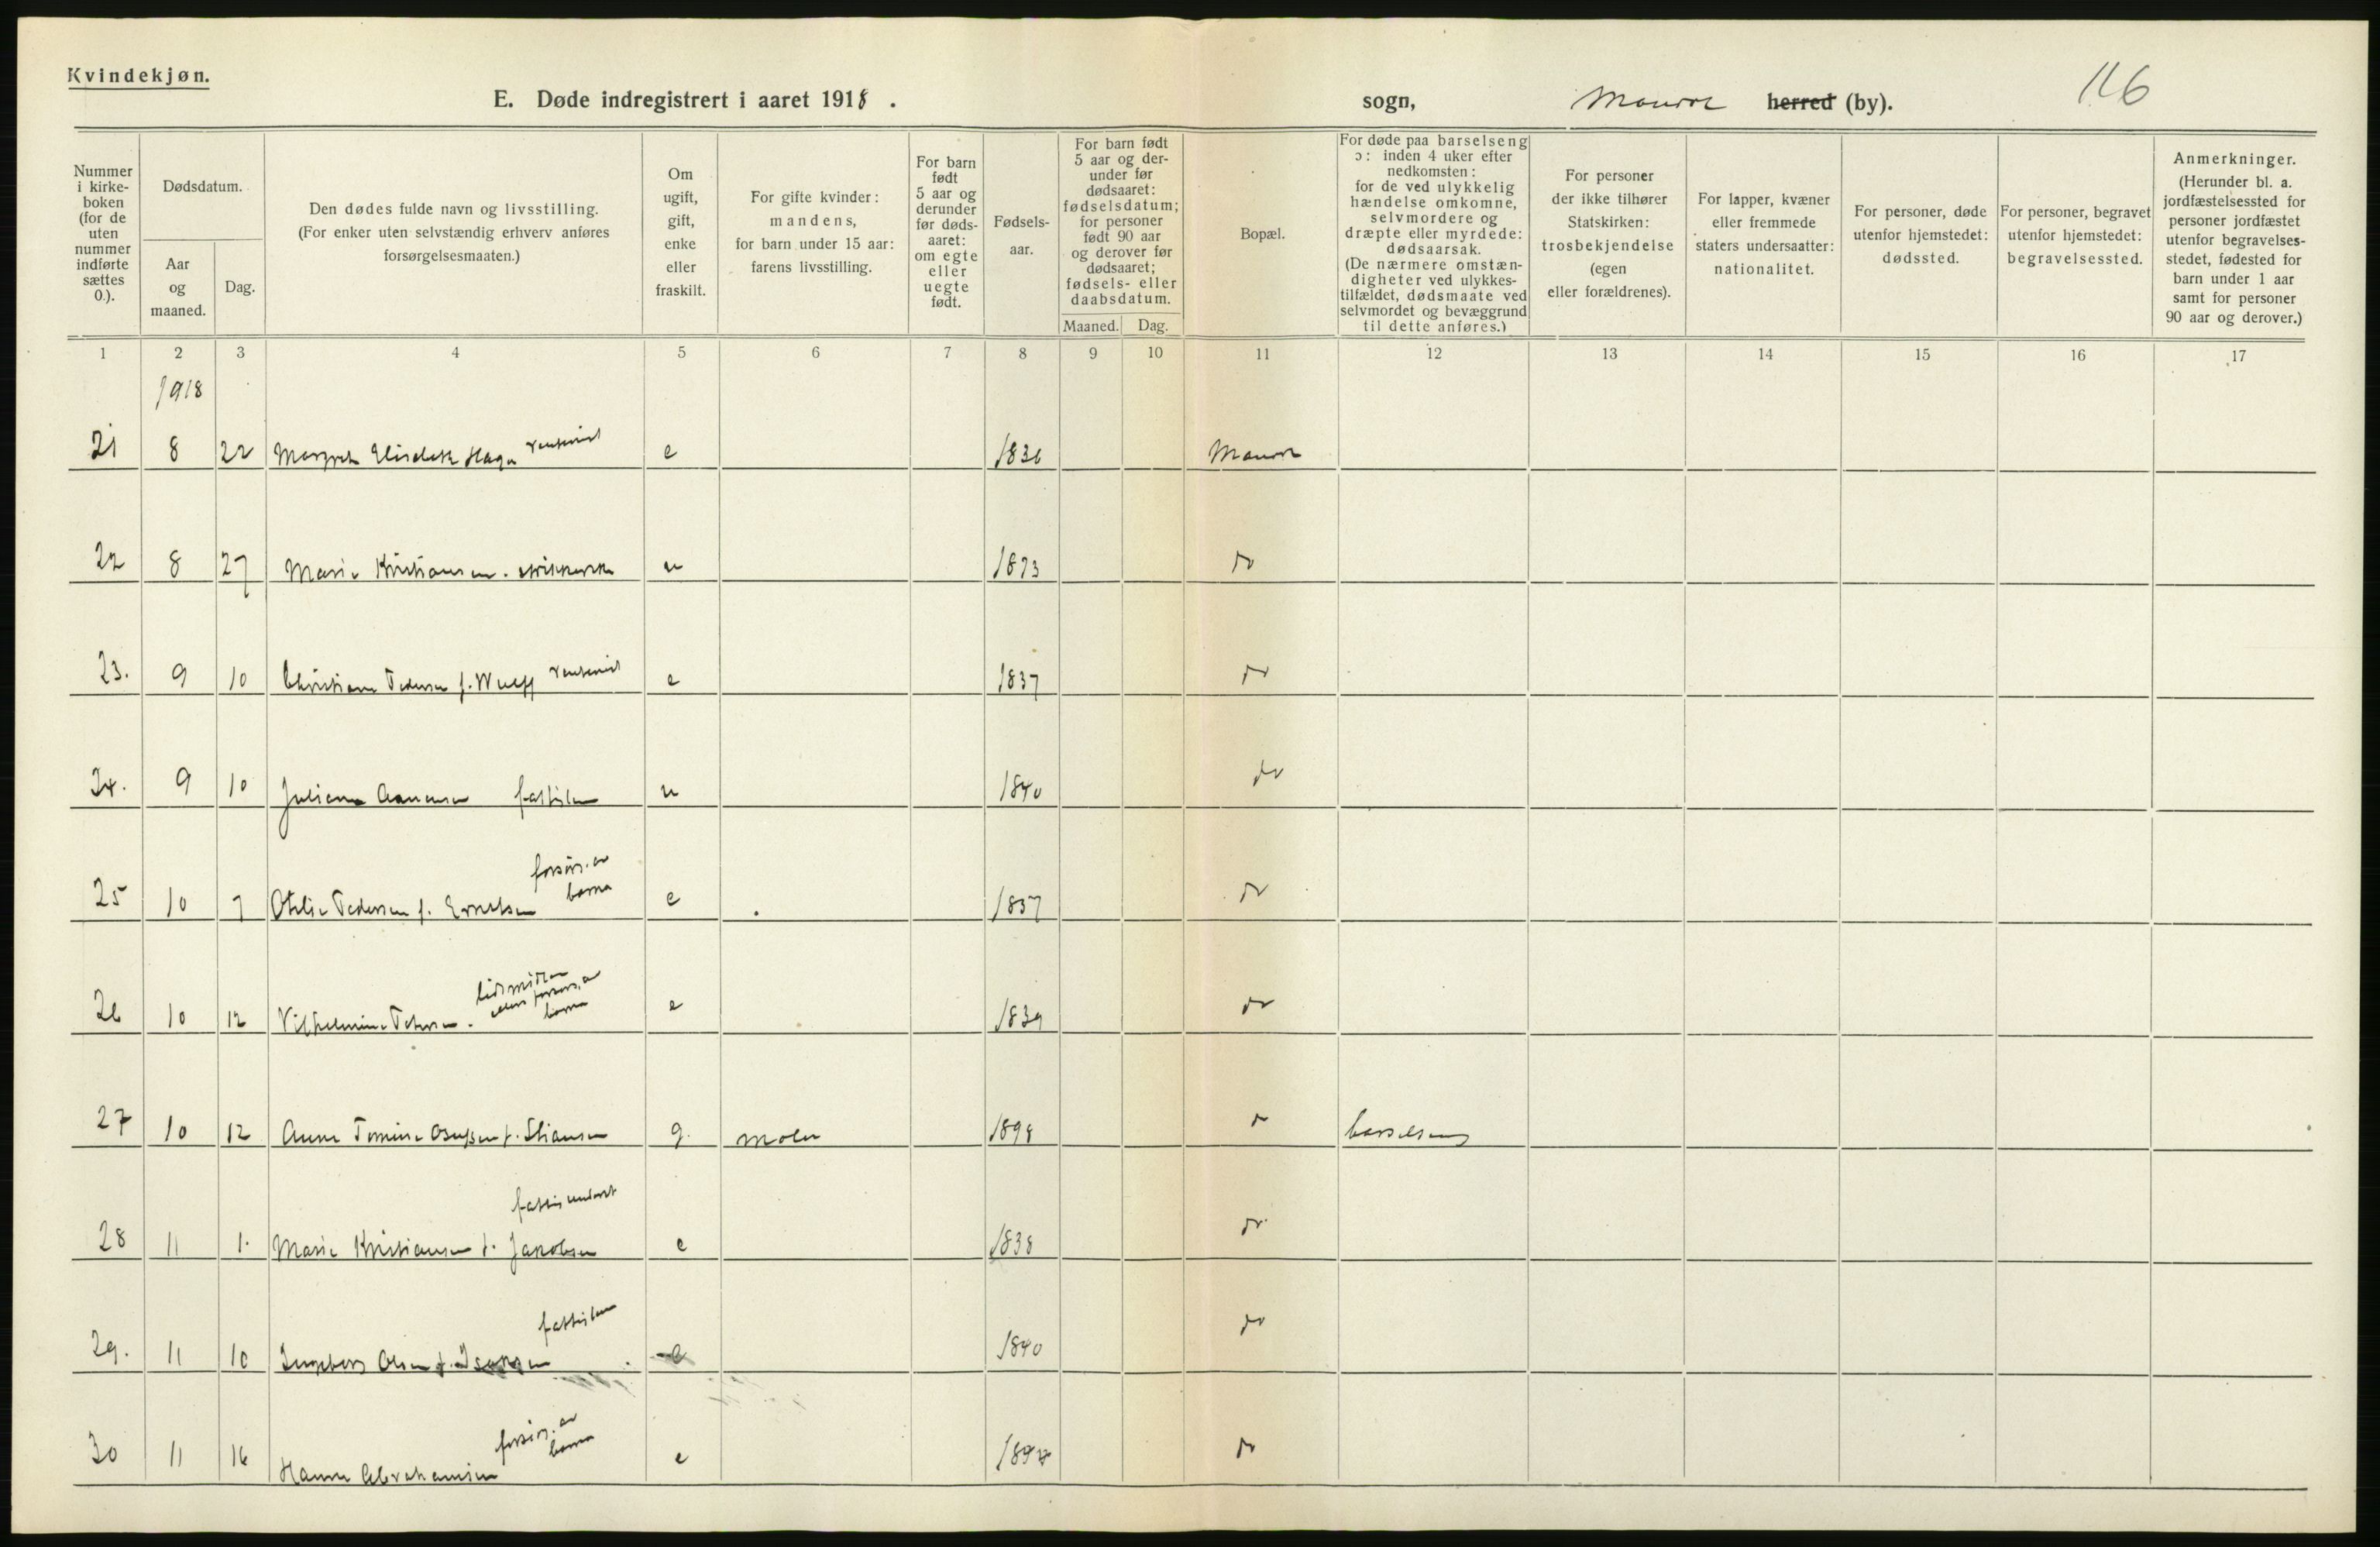 Kvindekjøn.
E. Døde indregistrert i aaret 1918.
sogn, herred (by).
116
Nummer i kirkeboken (for de uten nummer indførte sættes 0.).
Dødsdatum.
Aar og maaned.
Dag.
Den dødes fulde navn og livsstilling. (For enker uten selvstændig erhverv anføres forsørgelsesmaaten.)
Om ugift, gift, enke eller fraskilt.
For gifte kvinder: mandens, for barn under 15 aar: farens livsstilling.
For barn født 5 aar og derunder før dødsaaret: om egte eller uegte født.
Fødselsaar.
For barn født 5 aar og derunder før dødsaaret: fødselsdatum; for personer født 90 aar og derover før dødsaaret; fødsels- eller daabsdatum.
Maaned.
Dag.
Bopæl.
For døde paa barselseng ɔ: inden 4 uker efter nedkomsten: for de ved ulykkelig hændelse omkomne, selvmordere og dræpte eller myrdede: dødsaarsak. (De nærmere omstændigheter ved ulykkestilfældet, dødsmaate ved selvmordet og bevæggrund til dette anføres.)
For personer der ikke tilhører Statskirken: trosbekjendelse (egen eller forældrenes).
For lapper, kvæner eller fremmede staters undersaatter: nationalitet.
For personer, døde utenfor hjemstedet: dødssted.
For personer, begravet utenfor hjemstedet: begravelsessted.
Anmerkninger. (Herunder bl. a. jordfæstelsessted for personer jordfæstet utenfor begravelsesstedet, fødested for barn under 1 aar samt for personer 90 aar og derover.)
1 2 3 4 5 6 7 8 9 10 11 12 13 14 15 16 17
1918
21 8 22 Elisabeth e 1836
22 8 27 Marie Kristiansen. u do
23. 9 10 Christiane Pedersen f. Wulff e 1837 do
24. 9 10 Juliane Aanensen fattiglem u 1840 do
25 10 7 Otilie Pedersen f. forsörg. av barna e 1837 do
26 10 12 Vilhelmine barna e 1839 do
27 10 12 Anne g. maler 1898 barselseng
28 11 1. Marie Kristiansen f. Jakobsen fattigunderst e 1838 do
29. 11 10 Ingeborg Olsen f. fattiglem e 1840 do
30 11 16 Hanne Abrahamsen forsörg. av barna e do